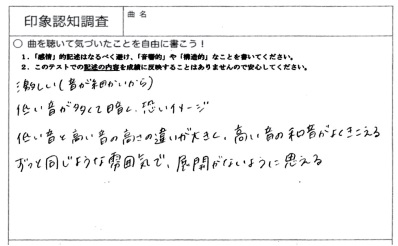 印象認知調査
曲名
○ 曲を聴いて気づいたことを自由に書こう！
1．「感情」的記述はなるべく避け、「音響的」や「構造的」なことを書いてください。
2．このテストでの記述の内容を成績に反映することはありませんので安心してください。
激しい（音が細かいから）
低い音が多くて暗く、恐いイメージ
低い音と高い音の高さの違いが大きく、高い音の和音がよくきこえる
ずっと同じような雰囲気で、展開がないように思える